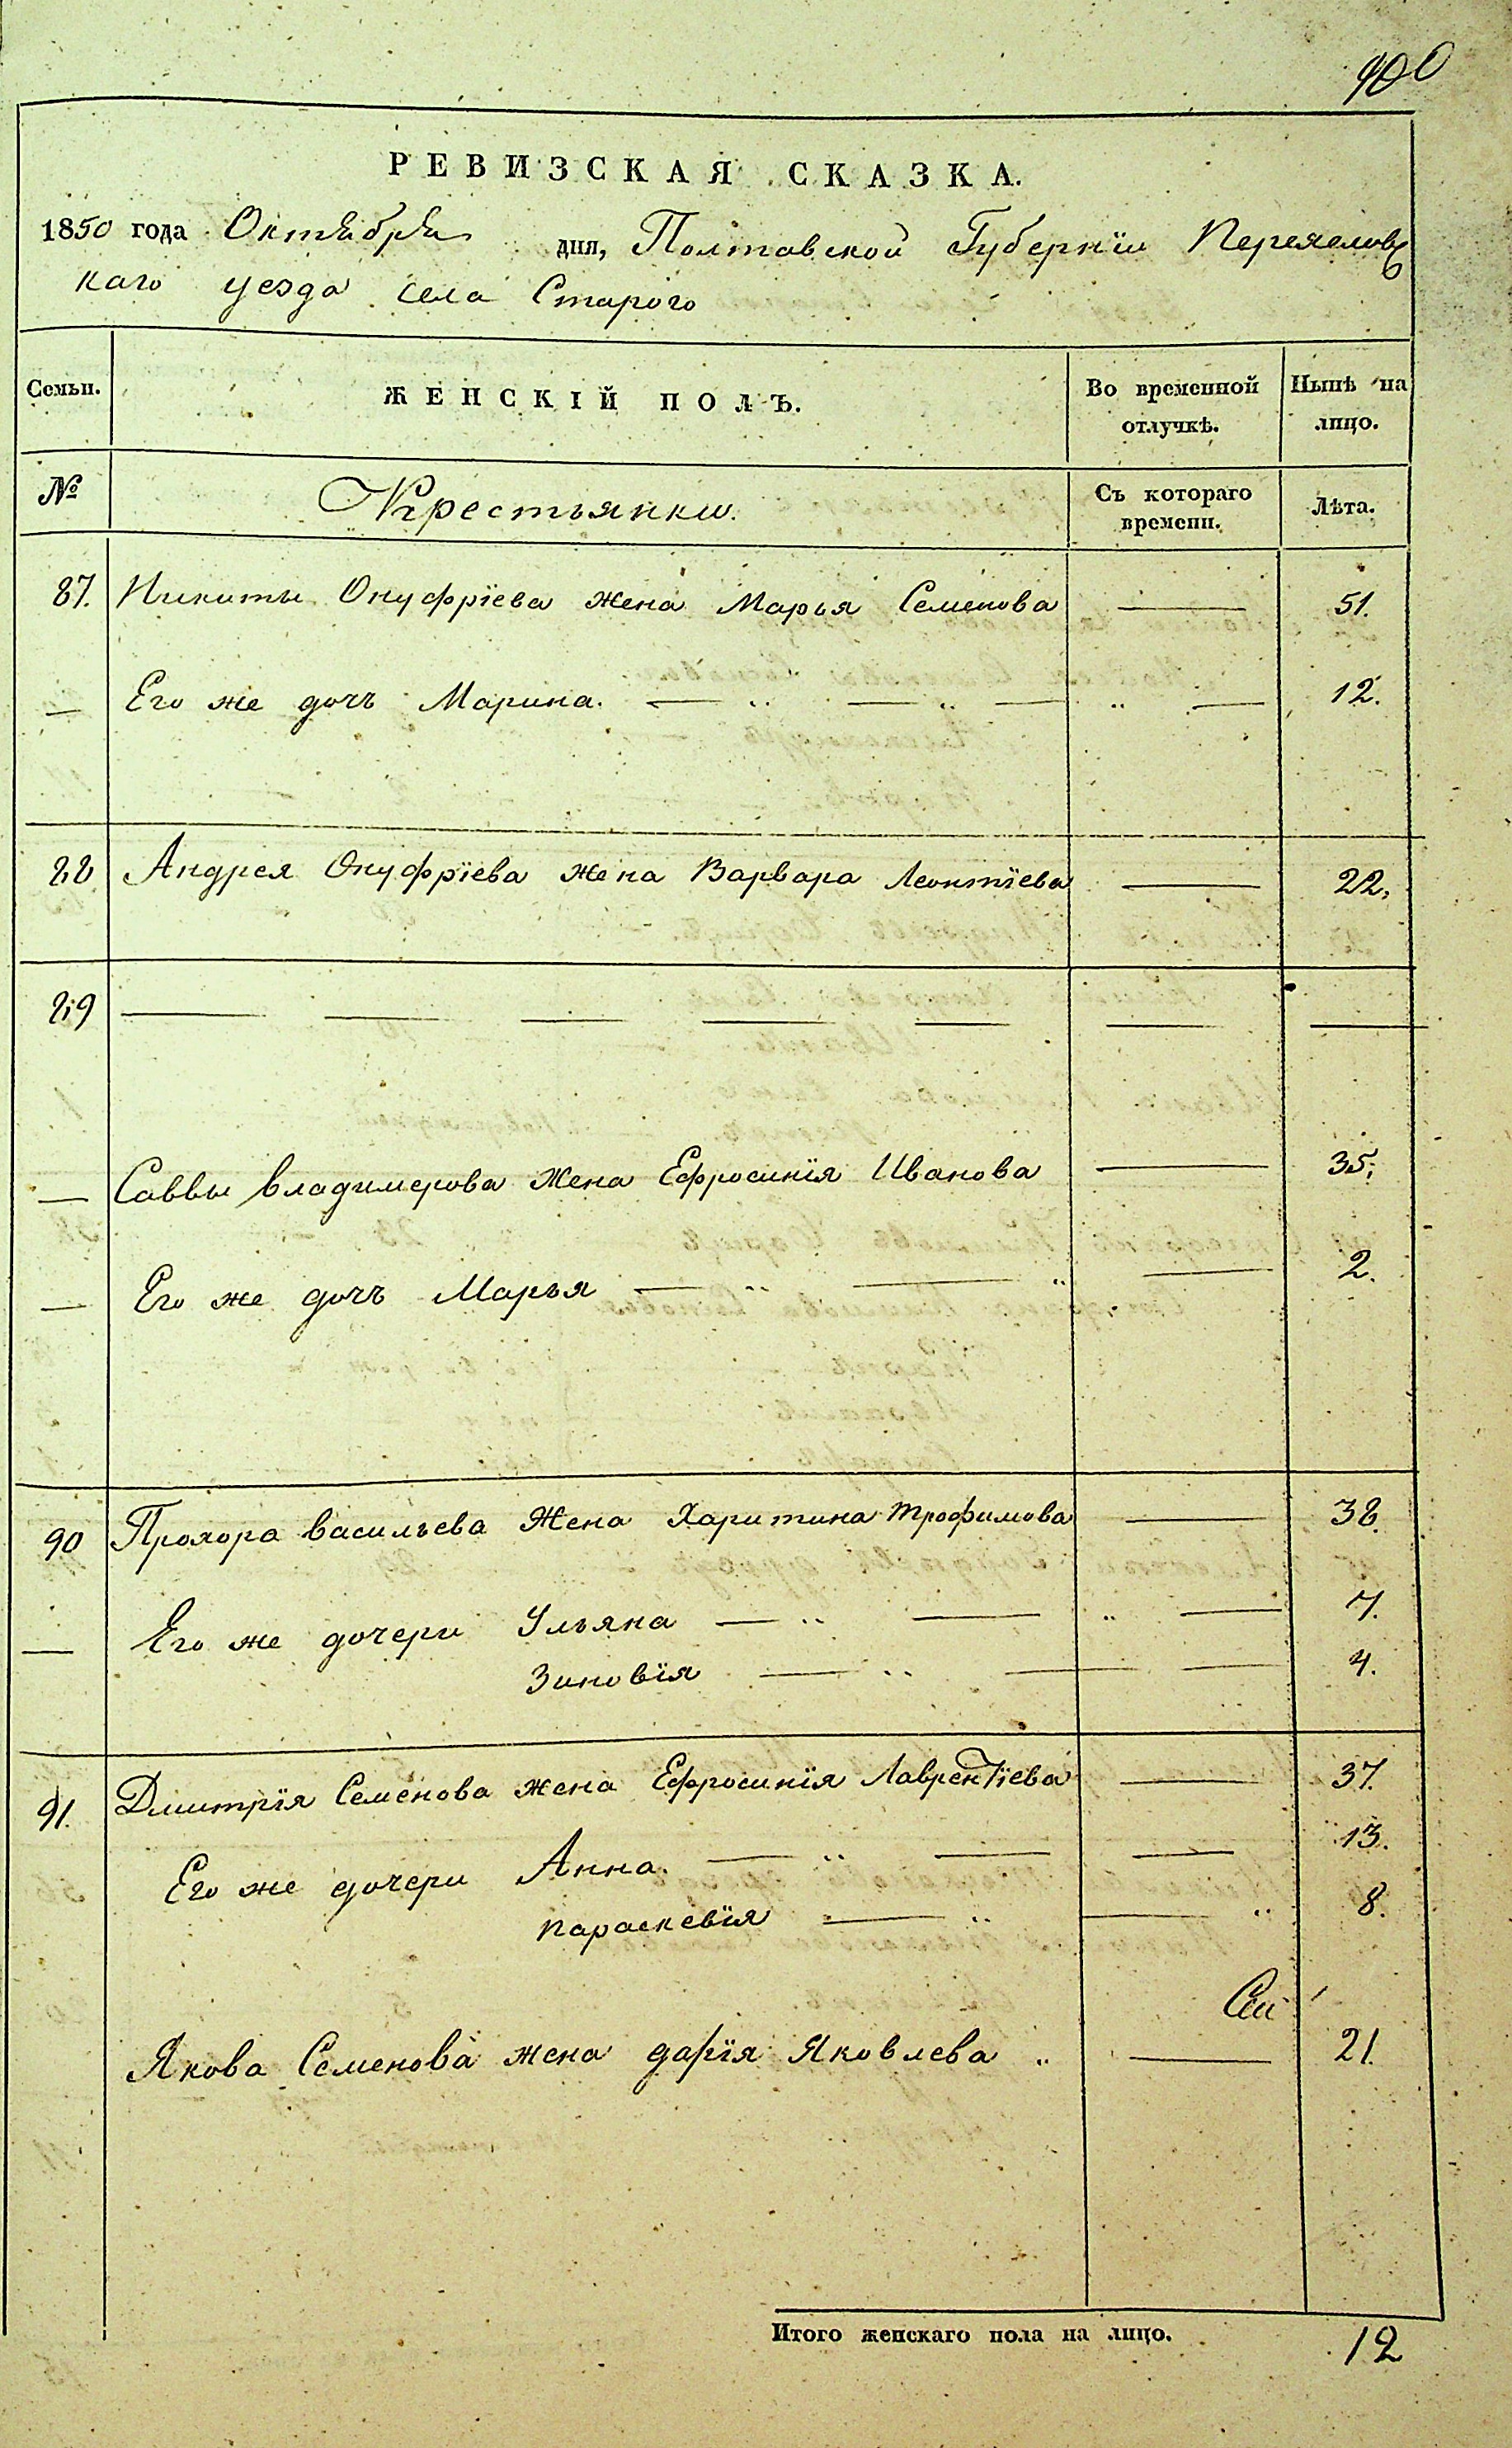 400
РЕВИЗСКАЯ СКАЗКА.
1850 года Октября дня, Полтавской Губернïи Переясловс
каго уезда села Старого
Семьи. ЖЕНСКІЙ ПОЛЪ. Во временной отлучкѣ. Нынѣ на лицо.
№ Крестьянки. Съ котораго времени. Лѣта.
87. Никиты Онуфрïева жена Марья Семенова — 51.
— Его же дочь Марина. — „ — „ — „ — 12.
88 Андрея Онуфрïева жена Варвара Леонтïева — 22,
89 — — — — — — —
— Саввы Владимерова жена Ефросинïя Иванова — 35,
— Его же дочь Марья — „ — „ — 2.
90 Прохора Васильева жена Харитина Трофимова — 38.
— Его же дочери Ульяна — „ — „ — 7.
Зиновïя — „ — — 4.
91. Дмитрïя Семенова жена Ефросинïя Лаврентïева — 37.
Его же дочери Анна. — „ — — 13.
Параскевïя — „ — „ 8.
Якова Семенова жена Дарïя Яковлева „ — 21.
Итого женскаго пола на лицо. 12